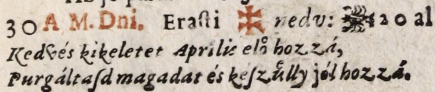 30 A M. Dni. Eraſti ✠ nedv: 20 al
Kedvés kikeletet Aprilis elő hozzá,
Purgáltaſd magadat és késẑűlly jól hozzá.